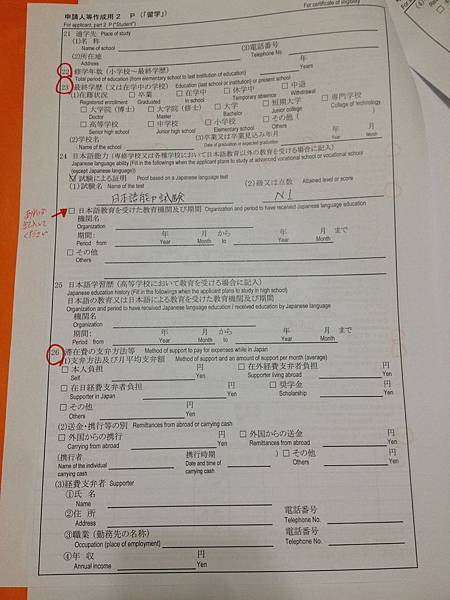 For certificate of eligibility
申請人等作成用２　Ｐ（「留学」）
For applicant, part 2 P ("Student")
21 通学先 Place of study
(1)名 称
Name of school
(3)電話番号
Telephone No.
(2)所在地
Address
22 修学年数（小学校～最終学歴） 年
Total period of education (from elementary school to last institution of education) Years
23 最終学歴（又は在学中の学校） Education (last school or institution) or present school
(1)在籍状況 □ 卒業 □ 在学中 □ 休学中 □ 中退
Registered enrollment Graduated In school Temporary absence Withdrawal
□ 大学院（博士） □ 大学院（修士） □ 大学 □ 短期大学 □ 専門学校
Doctor Master Bachelor Junior college College of technology
□ 高等学校 □ 中学校 □ 小学校 □ その他（ ）
Senior high school Junior high school Elementary school Others
(2)学校名 (3)卒業又は卒業見込み年月 年 月
Name of the school Date of graduation or expected graduation Year Month
24 日本語能力（専修学校又は各種学校において日本語教育以外の教育を受ける場合に記入）
Japanese language ability (Fill in the followings when the applicant plans to study at advanced vocational school or vocational school
(except Japanese language))
☑ 試験による証明 Proof based on a Japanese language test
(1)試験名 Name of the test (2)級又は点数 Attained level or score
日本語能力試験 N1
□ 日本語教育を受けた教育機関及び期間 Organization and period to have received Japanese language education
機関名
Organization
期間: 年 月 から 年 月 まで
Period from Year Month to Year Month
□ その他
Others
25 日本語学習歴（高等学校において教育を受ける場合に記入）
Japanese education history (Fill in the followings when the applicant plans to study in high school)
日本語の教育又は日本語による教育を受けた教育機関及び期間
Organization and period to have received Japanese language education / received education by Japanese language
機関名
Organization
期間: 年 月 から 年 月 まで
Period from Year Month to Year Month
26 滞在費の支弁方法等 Method of support to pay for expenses while in Japan
(1)支弁方法及び月平均支弁額 Method of support and an amount of support per month (average)
□ 本人負担 円 □ 在外経費支弁者負担 円
Self Yen Supporter living abroad Yen
□ 在日経費支弁者負担 円 □ 奨学金 円
Supporter in Japan Yen Scholarship Yen
□ その他 円
Others Yen
(2)送金・携行等の別 Remittances from abroad or carrying cash
□ 外国からの携行 円 □ 外国からの送金 円
Carrying from abroad Yen Remittances from abroad Yen
(携行者 携行時期 ) □ その他 円
Name of the individual Date and time of Others Yen
carrying cash carrying cash
(3)経費支弁者 Supporter
①氏 名
Name
②住 所 電話番号
Address Telephone No.
③職業（勤務先の名称） 電話番号
Occupation (place of employment) Telephone No.
④年 収 円
Annual income Yen